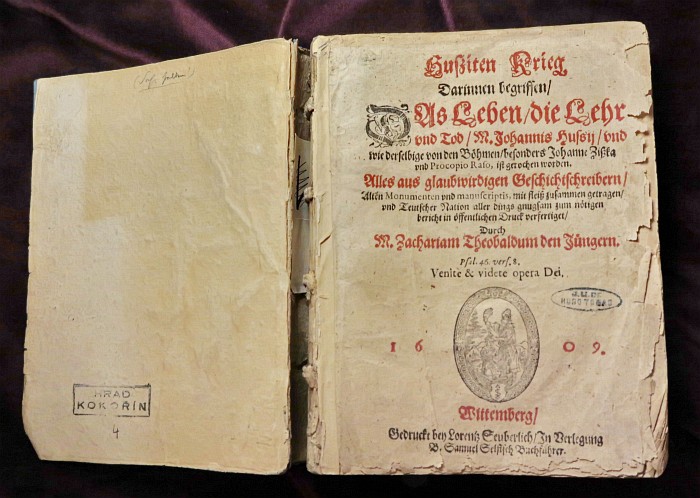 HRAD
KOKOŘÍN
4
Hußiten Krieg
Darinnen begriffen/
DAs Leben/die Lehr
vnd Tod/M. Johannis Hussij/vnd
wie derselbige von den Böhmen/besonders Johanne Zißka
vnd Procopio Raso, ist gerochen worden.
Alles aus glaubwirdigen Geschichtschreibern/
Alten Monumenten vnd manuscriptis, mit fleiß zusammen getragen/
vnd Teutscher Nation aller dings gnugsam zum nötigen
bericht in öffentlichen Druck verfertiget/
Durch
M. Zachariam Theobaldum den Jüngern.
Psal. 46. vers. 8.
Venite & videte opera Dei.
J.U.DR.
1609.
Wittemberg/
Gedruckt bey Lorentz Seuberlich/In Verlegung
B. Samuel Selfisch Buchführer.